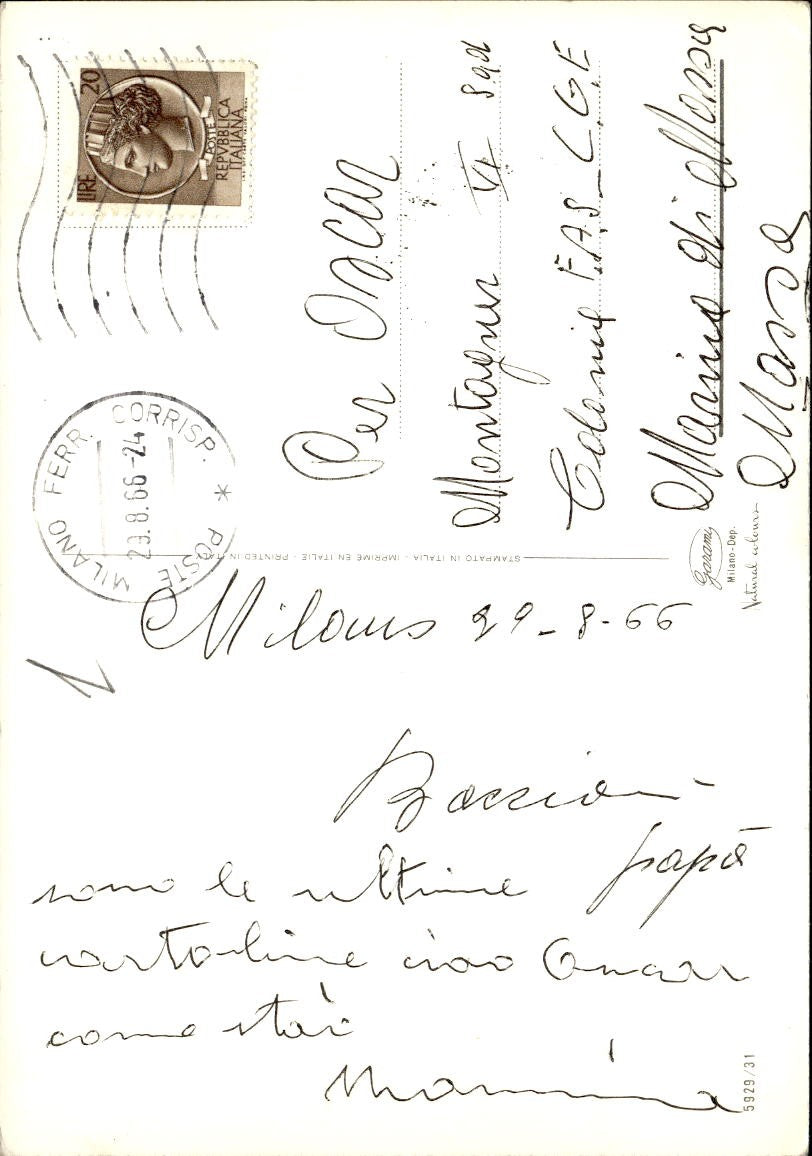 Milano 29-8-66
Bacioni
papà
sono le ultime
cartoline ciao Oscar
come stai
Mammina
5929/31
LIRE 20
POSTE
REPVBBLICA
ITALIANA
MILANO FERR. CORRISP. * POSTE
29.8.66-24
Per Oscar
Montagner VI sqd
Colonia F.A.S_C.G.E
Marina di Massa
Massa
STAMPATO IN ITALIA - IMPRIME EN ITALIE - PRINTED IN ITALY
Garami
Milano-Dep.
Natural colours